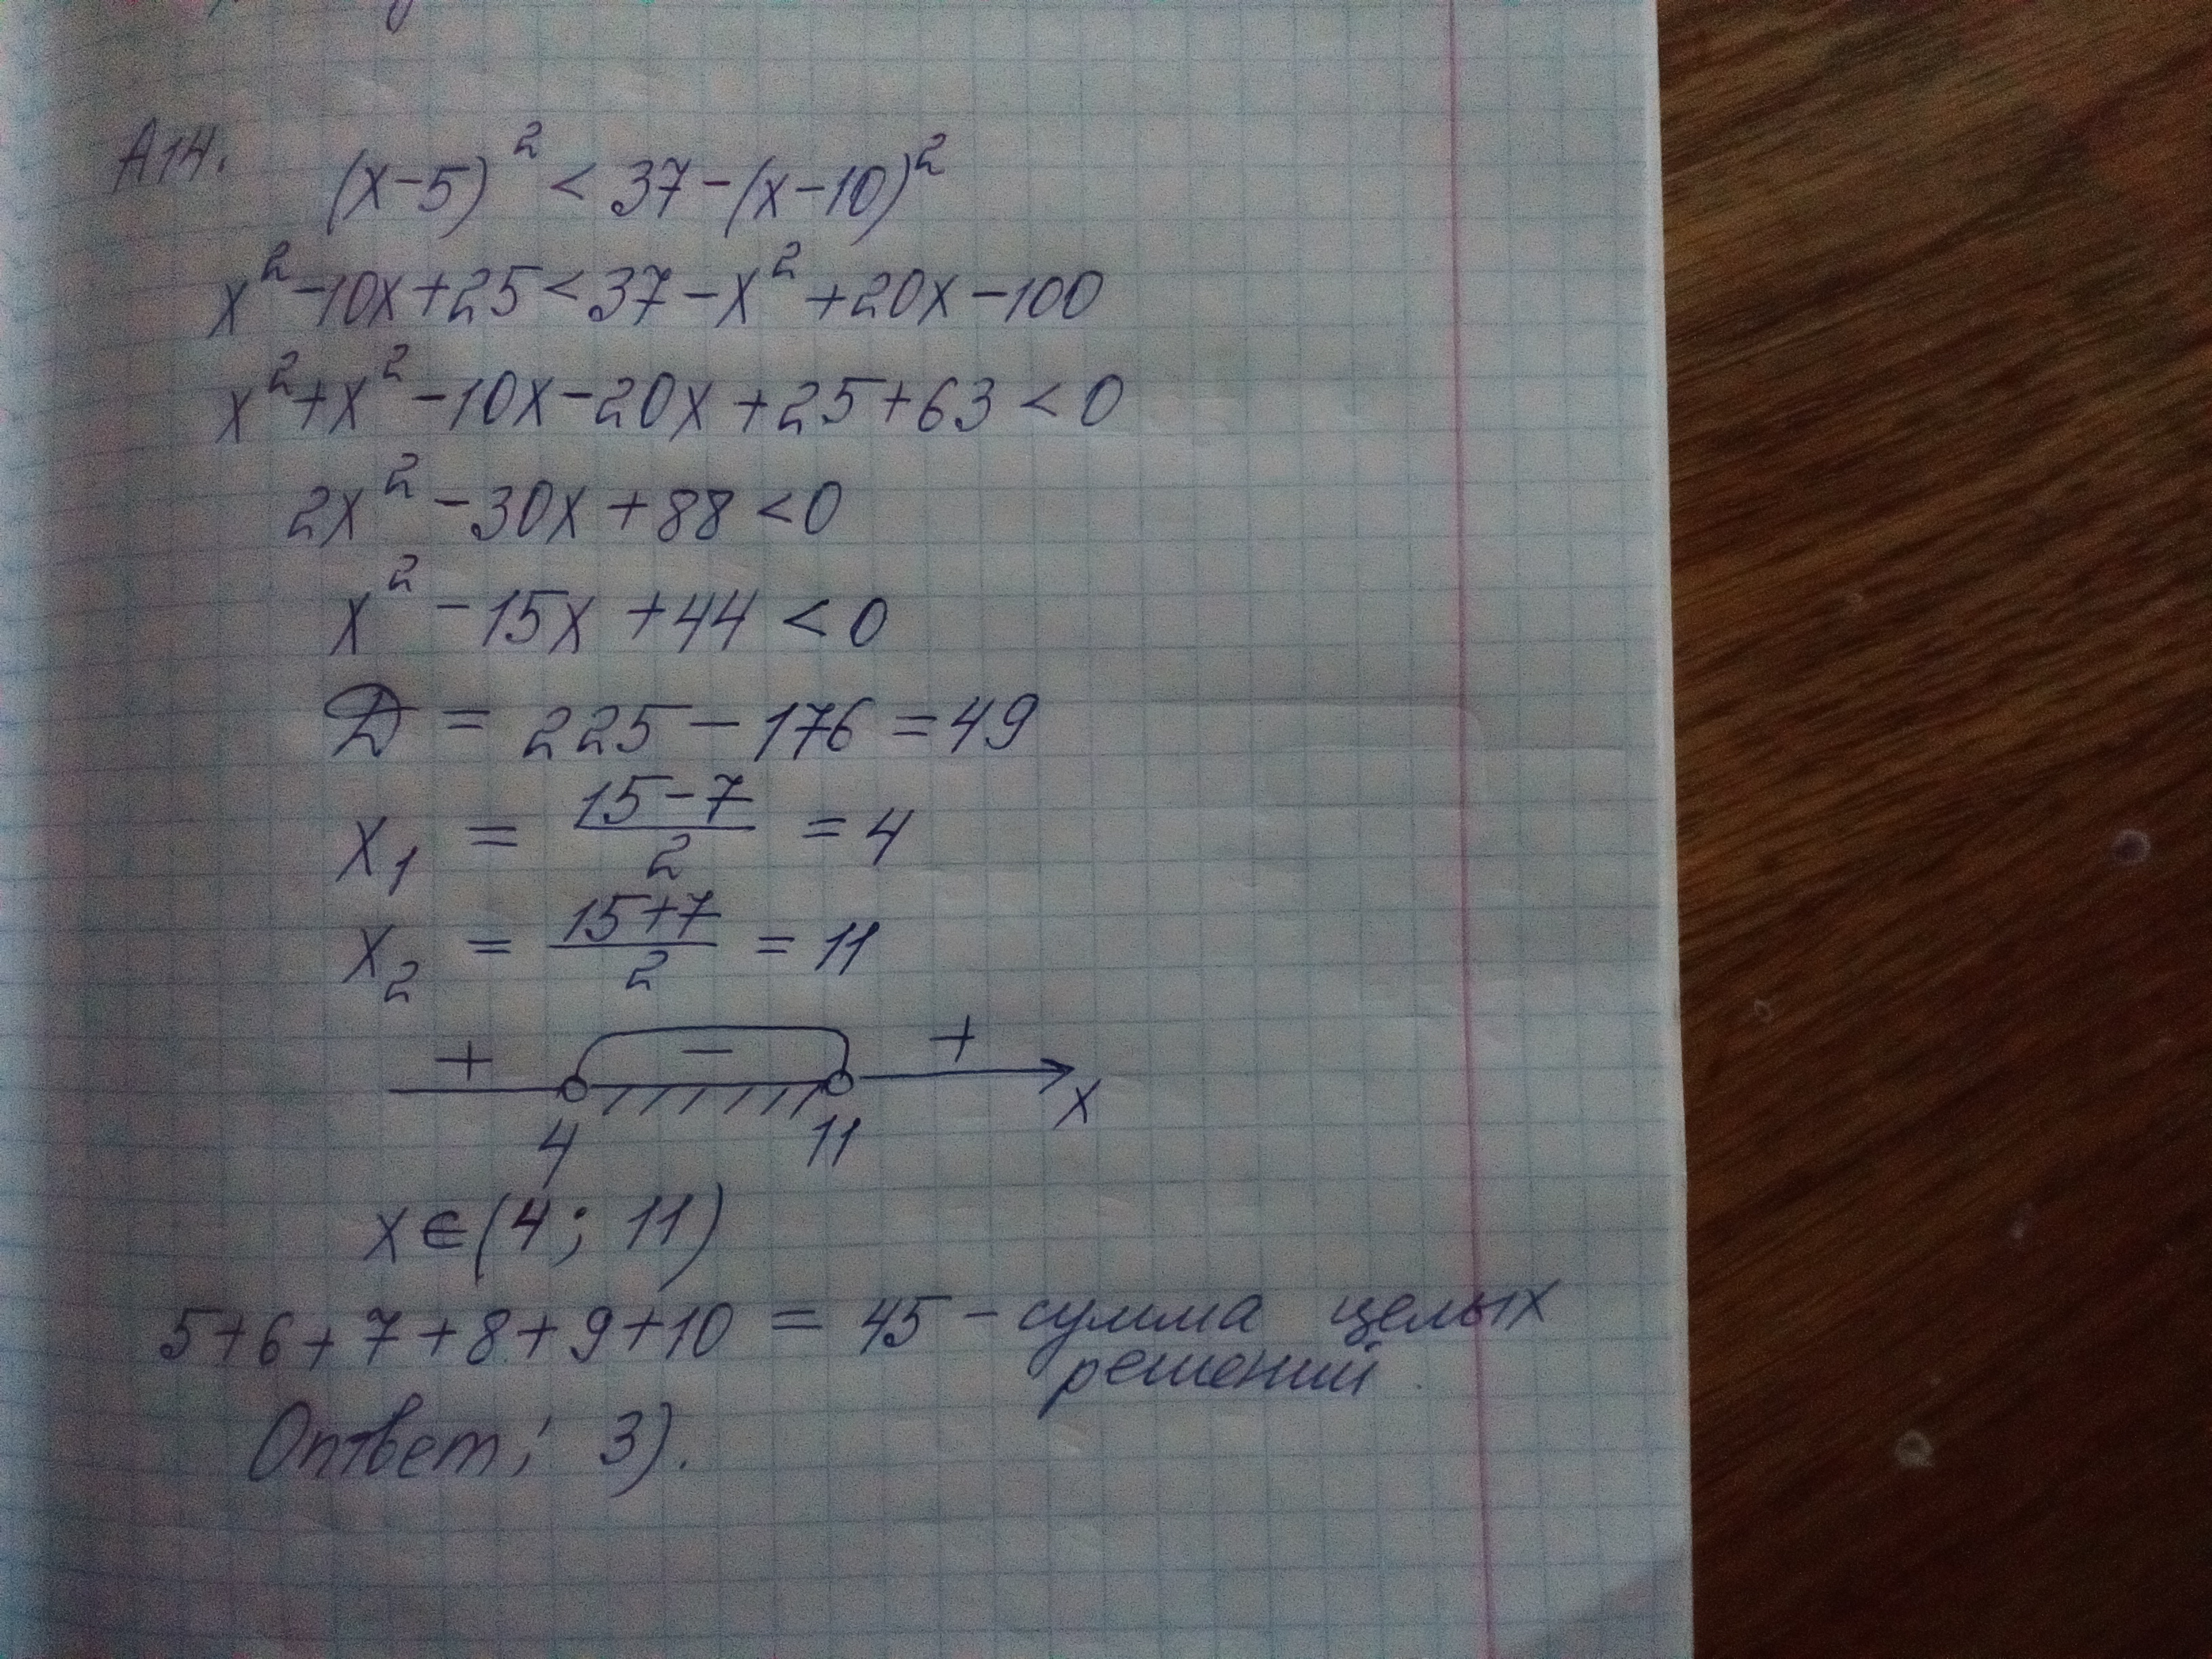 А14.
(x-5)² < 37-(x-10)²
x²-10x+25<37-x²+20x-100
x²+x²-10x-20x+25+63<0
2x²-30x+88<0
x²-15x+44<0
D = 225-176=49
x₁ = (15-7)/2 = 4
x₂ = (15+7)/2 = 11
+ - +
4 11 x
x∈(4; 11)
5+6+7+8+9+10 = 45 - сумма целых
решений
Ответ: 3).